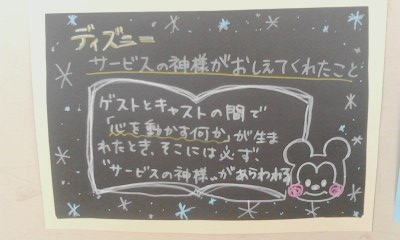 ディズニー
サービスの神様がおしえてくれたこと
ゲストとキャストの間で
「心を動かす何か」が生ま
れたとき、そこには必ず、
"サービスの神様"があらわれる